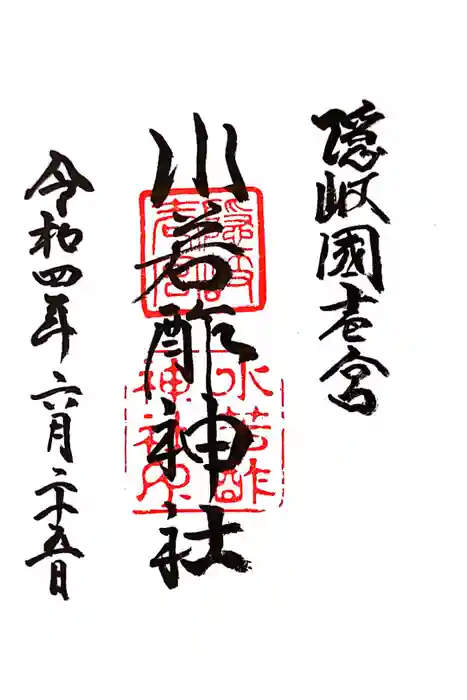 隠岐國壱宮
水若酢神社
水若酢
神社印
令和四年六月二十五日